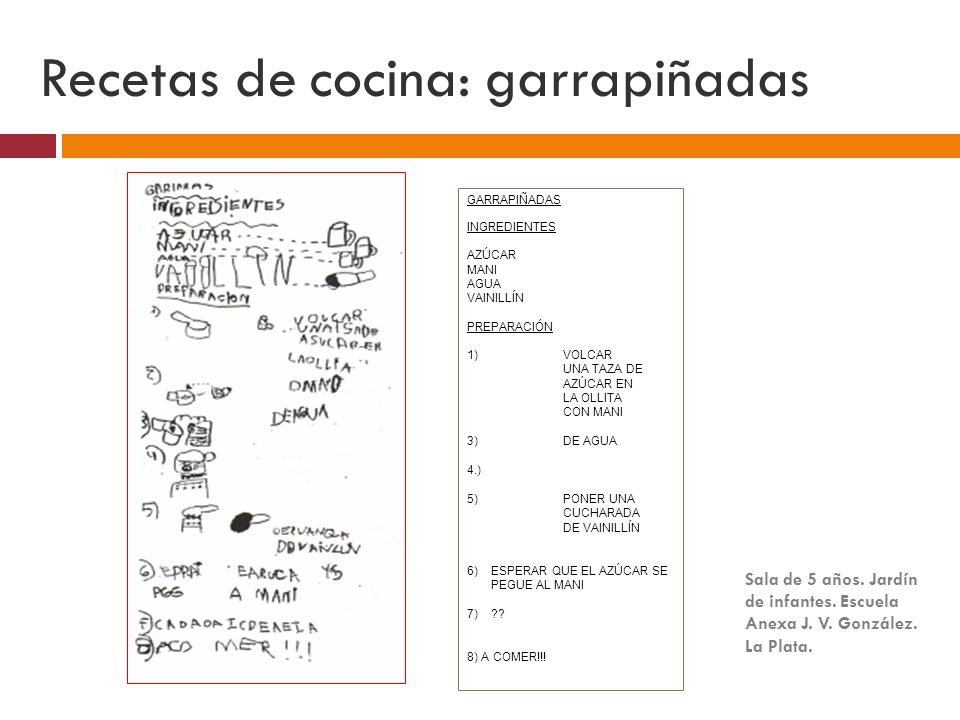 Recetas de cocina: garrapiñadas
GARIMAS
INGREDIENTES
ASUCAR
MANI
AGUA
PREPARACION
1)
VOLCAR
ASUCAR EN
LAOLLITA
2)
DEAGUA
3)
4)
5)
6)
A MANI
7)
8)
GARRAPIÑADAS
INGREDIENTES
AZÚCAR
MANI
AGUA
VAINILLÍN
PREPARACIÓN
1) VOLCAR
UNA TAZA DE
AZÚCAR EN
LA OLLITA
CON MANI
3) DE AGUA
4.)
5) PONER UNA
CUCHARADA
DE VAINILLÍN
6) ESPERAR QUE EL AZÚCAR SE
PEGUE AL MANI
7) ??
8) A COMER!!!
Sala de 5 años. Jardín
de infantes. Escuela
Anexa J. V. González.
La Plata.